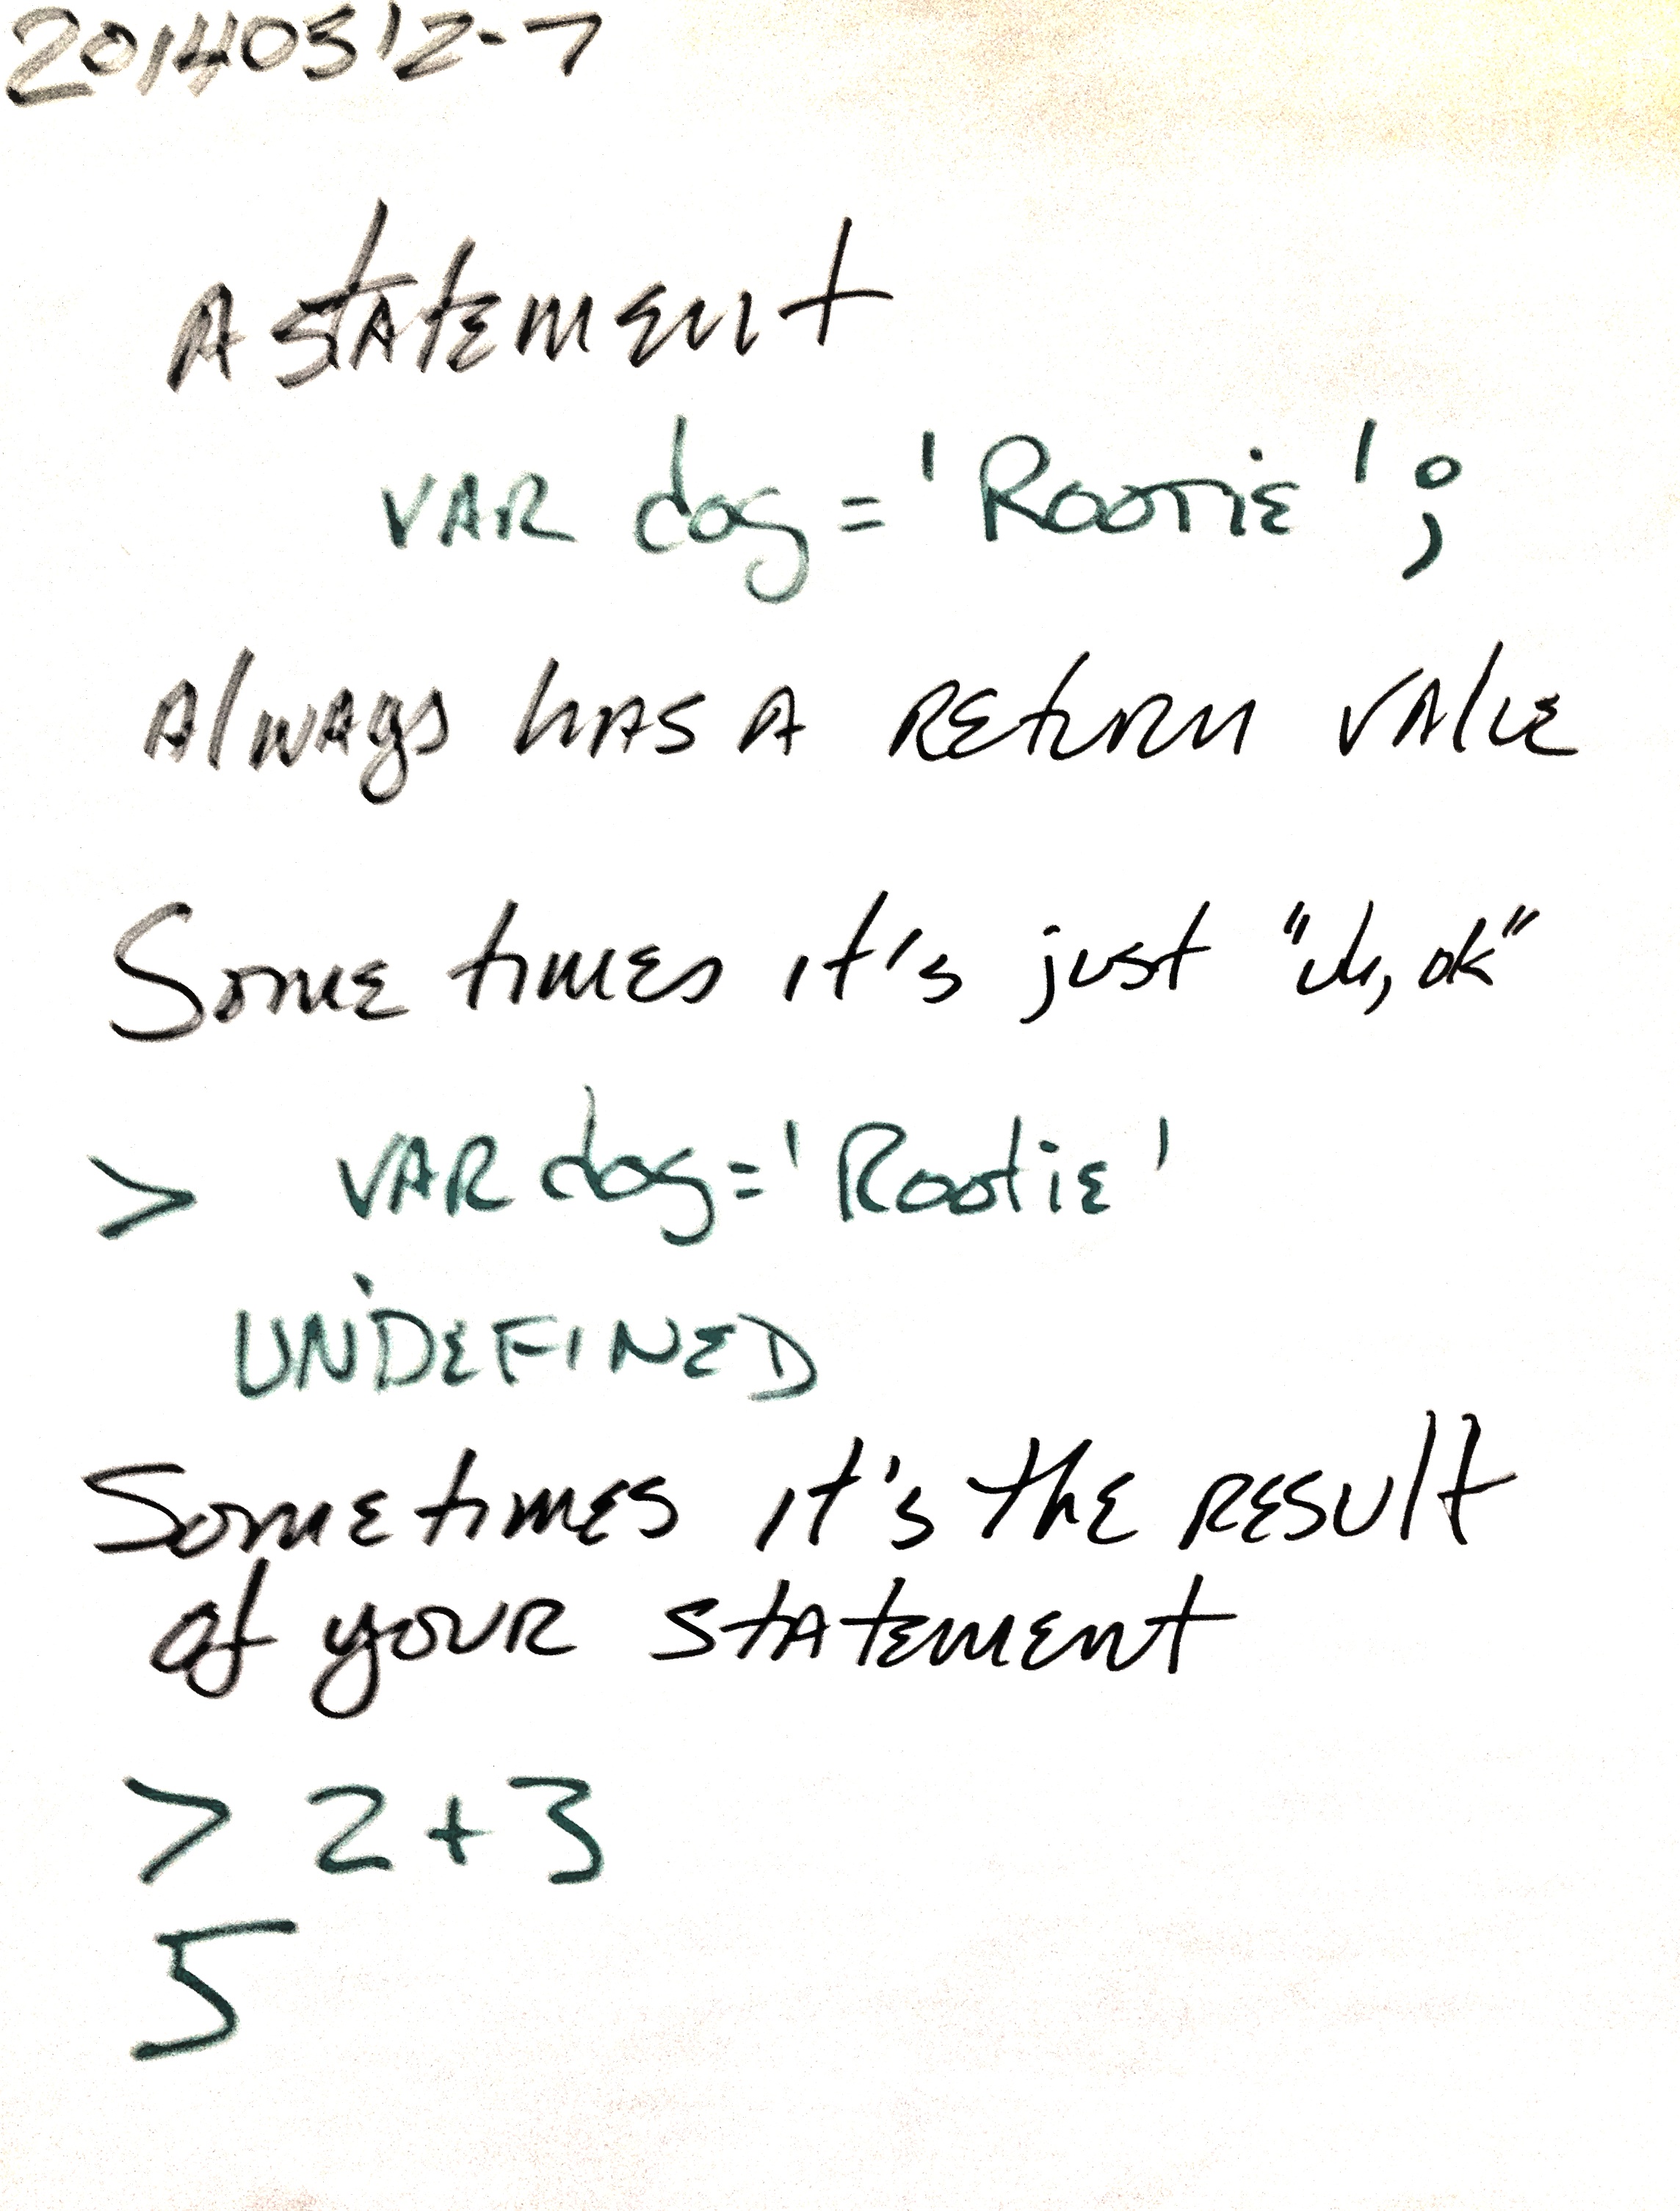 20140512-7
A statement
VAR dog = 'Rootie';
Always has a return value
Some times it's just "uh, ok"
> VAR dog='Rootie'
UNDEFINED
Sometimes it's the result
of your statement
> 2+3
5